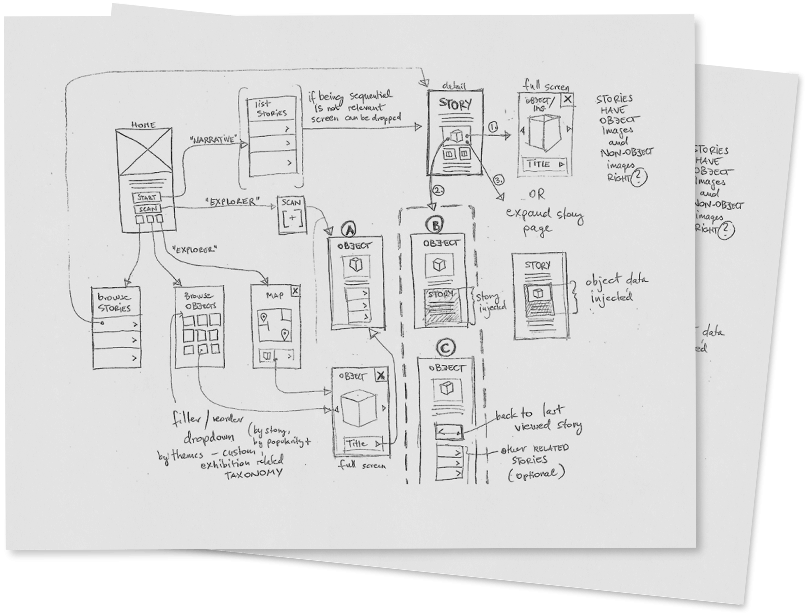 HOME
START
SCAN
"NARRATIVE"
list
STORIES
if being sequential
is not relevant
screen can be dropped
detail
STORY
1.
2.
3.
full screen
OBJECT/
IMG
X
TITLE
STORIES
HAVE
OBJECT
Images
and
NON-OBJECT
images
RIGHT ?
OR
expand story
page
"EXPLORER"
SCAN
[+]
"EXPLORER"
browse
STORIES
Browse
OBJECTS
MAP
X
A
OBJECT
B
OBJECT
STORY
story
injected
STORY
object data
injected
C
OBJECT
back to last
viewed story
other RELATED
STORIES
(optional)
OBJECT
X
Title
full screen
filter/reorder
dropdown
(by story,
by popularity +
by themes – custom,
exhibition related
TAXONOMY
STORIES
HAVE
OBJECT
Images
and
NON-OBJECT
images
RIGHT ?
data
ed